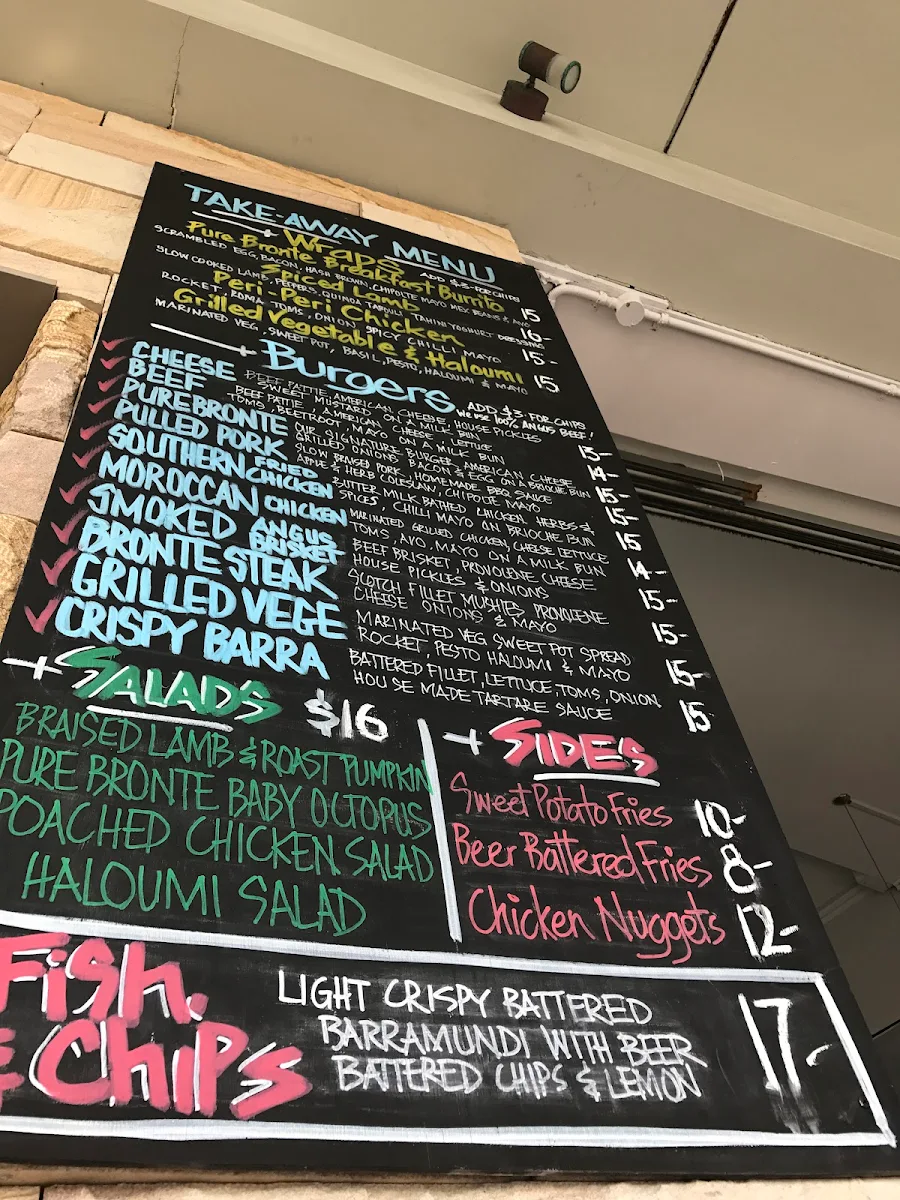 TAKE-AWAY MENU
+ Wraps ADD $3-FOR CHIPS
Pure Bronte Breakfast Burrito
SCRAMBLED EGG, BACON, HASH BROWN, CHIPOLTE MAYO MEX BEANS & AVO 15
Spiced Lamb
SLOW COOKED LAMB, PEPPERS, QUINOA TABOULI, TAHINI YOGHURT DRESSING 16-
Peri-Peri Chicken
ROCKET, ROMA TOMS, ONION, SPICY CHILLI MAYO 15-
Grilled Vegetable & Haloumi
MARINATED VEG, SWEET POT, BASIL, PESTO, HALOUMI & MAYO 15
+ Burgers ADD $3-FOR CHIPS
WE USE 100% ANGUS BEEF!
CHEESE BEEF PATTIE, AMERICAN CHEESE, HOUSE PICKLES
SWEET MUSTARD ON A MILK BUN 15-
BEEF BEEF PATTIE, AMERICAN CHEESE, LETTUCE
TOMS, BEETROOT, MAYO ON A MILK BUN 14-
PURE BRONTE OUR SIGNATURE BURGER, AMERICAN CHEESE
GRILLED ONIONS BACON & EGG ON A BRIOCHE BUN 15-
PULLED PORK SLOW BRAISED PORK, HOMEMADE BBQ SAUCE
APPLE & HERB COLESLAW, CHIPOLTE MAYO 15-
SOUTHERN FRIED CHICKEN BUTTER MILK BATHED CHICKEN, HERBS &
SPICES, CHILLI MAYO ON BRIOCHE BUN 15
MOROCCAN CHICKEN MARINATED GRILLED CHICKEN, CHEESE LETTUCE
TOMS, AVO, MAYO ON A MILK BUN 14-
SMOKED ANGUS BRISKET BEEF BRISKET, PROVOLENE CHEESE
HOUSE PICKLES & ONIONS 15-
BRONTE STEAK SCOTCH FILLET MUSHIES PROVOLENE
CHEESE ONIONS & MAYO 15-
GRILLED VEGE MARINATED VEG SWEET POT SPREAD
ROCKET, PESTO HALOUMI & MAYO 15-
CRISPY BARRA BATTERED, FILLET, LETTUCE, TOMS, ONION
HOUSE MADE TARTARE SAUCE 15
+ SALADS $16
BRAISED LAMB & ROAST PUMPKIN
PURE BRONTE BABY OCTOPUS
POACHED CHICKEN SALAD
HALOUMI SALAD
+ SIDES
Sweet Potato Fries 10-
Beer Battered Fries 8-
Chicken Nuggets 12-
Fish
& Chips
LIGHT CRISPY BATTERED
BARRAMUNDI WITH BEER
BATTERED CHIPS & LEMON
17-